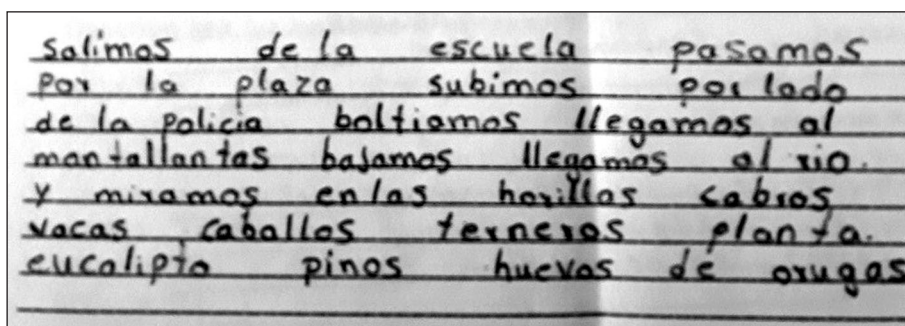 salimos de la escuela pasamos
por la plaza subimos por lado
de la policia boltiamos llegamos al
mantallantas bajamos llegamos al rio.
y miramos en las horillas cabros
vacas caballos terneros planta.
eucalipto pinos huevos de orugas